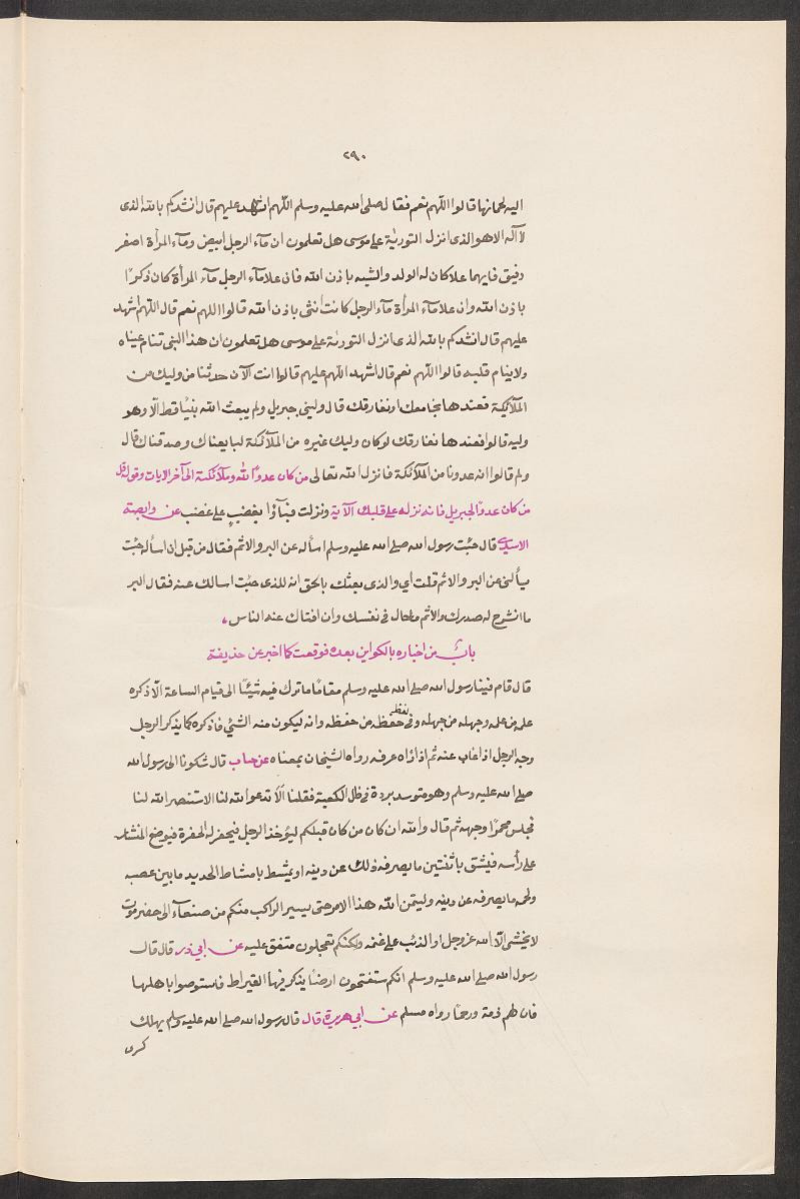 ٢٩٠
اليه لحمانها قالوا اللهم نعم فقال صلى الله عليه وسلم اللهم اشهد عليهم قال انشدكم بالله الذى
لا آله الا هو الذى انزل التورية على موسى هل تعلمون ان مآء الرجل ابيض ومآء المرأة اصفر
رقيق فايهما علا كان له الولد والشبه باذن الله فان علا مآء الرجل مآء المرأة كان ذكرًا
باذن الله وان علا مآء المرأة مآء الرجل كانت أنثى باذن الله قالوا اللهم نعم قال اللهم اشهد
عليهم قال انشدكم بالله الذى انزل التورية على موسى هل تعلمون ان هذا النبى تنام عيناه
ولا ينام قلبه قالوا اللهم نعم قال اشهد اللهم عليهم قالوا انت الآن حدثنا من وليك من
الملآئكة فعندها نجامعك او نفارقك قال وليى جبريل ولم يبعث الله نبيًا قط الّا وهو
وليه قالوا فعندها نفارقك لو كان وليك غيره من الملآئكة لبايعناك وصدقناك قال
ولم قالوا انه عدونا من الملآئكة فانزل الله تعالى من كان عدوًا لله وملآئكته الى آخر الايات وقوله قل
من كان عدوًا لجبريل فانه نزله على قلبك الآية ونزلت فبآؤا بغضبٍ على غضب عن وابصة
الاسدى قال جئت رسول الله صلى الله عليه وسلم اسأله عن البر والاثم فقال من قبل ان اسأله جئت
تسألنى عن البر والاثم قلت اي والذى بعثك بالحق انه للذى جئت اسالك عنه فقال البر
ما انشرح له صدرك والاثم ما حاك فى نفسك وان افتاك عنه الناس
باب من اخباره بالكواين بعده فوقعت كما اخبر عن حذيفة
قال قام فينا رسول الله صلى الله عليه وسلم مقامًا ما ترك فيه شيئًا الى قيام الساعة الّا ذكره
علمه من علمه وجهله من جهله وفى لفظ حفظه من حفظه وانه ليكون منه الشيئ فاذكره كما يذكر الرجل
وجه الرجل اذا غاب عنه ثم اذا رآه عرفه رواه الشيخان بمعناه عن خباب قال شكونا الى رسول الله
صلى الله عليه وسلم وهو متوسد بردة فى ظل الكعبة فقلنا ألا تدعو الله لنا الا تستنصر الله لنا
فجلس محمرًا وجهه ثم قال والله ان كان من كان قبلكم ليؤخذ الرجل فيحفر له الحفرة فيوضع المنشار
على رأسه فيشق باثنتين ما يصرفه ذلك عن دينه او يمشط بامشاط الحديد ما بين عصبه
ولحمه ما يصرفه عن دينه وليتمن الله هذا الامر حتى يسير الراكب منكم من صنعآء الى حضرموت
لا يخشى الّا الله عز وجل او الذئب على غنمه ولكنكم تعجلون متفق عليه عن ابى ذر قال قال
رسول الله صلى الله عليه وسلم انكم ستفتحون ارضًا يذكر فيها القيراط فاستوصوا باهلها
فان لهم ذمة ورحمًا رواه مسلم عن ابى هريرة قال قال رسول الله صلى الله عليه وسلم يهلك
كسرى